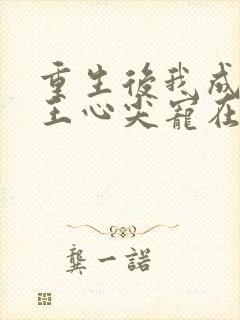 重生後我成
王心尖寵在
龔一諾